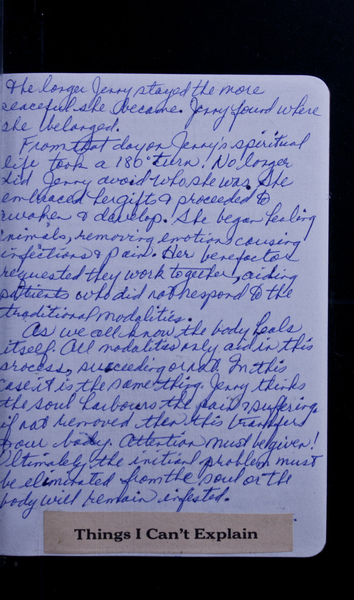 & the longer Jenny stayed the more
peaceful she became. Jenny found where
she belonged.
From that day on Jenny's spiritual
life took a 180° turn! No longer
did Jenny avoid who she was. She
embraced her gift & proceeded to
awaken & develop. She began healing
animals, removing emotions causing
infections & pain. Her benefactor
requested they work together, aiding
patients who did not respond to the
traditional modalities.
As we all know the body heals
itself. All modalities only aid in this
process, succeeding or not. In this
case it is the same thing. Jenny thinks
the soul harbours the pain & suffering
if not removed then this transfers
to our body. Attention must be given!
Ultimately the initial problem must
be eliminated from the soul or the
body will remain infested.
Things I Can't Explain